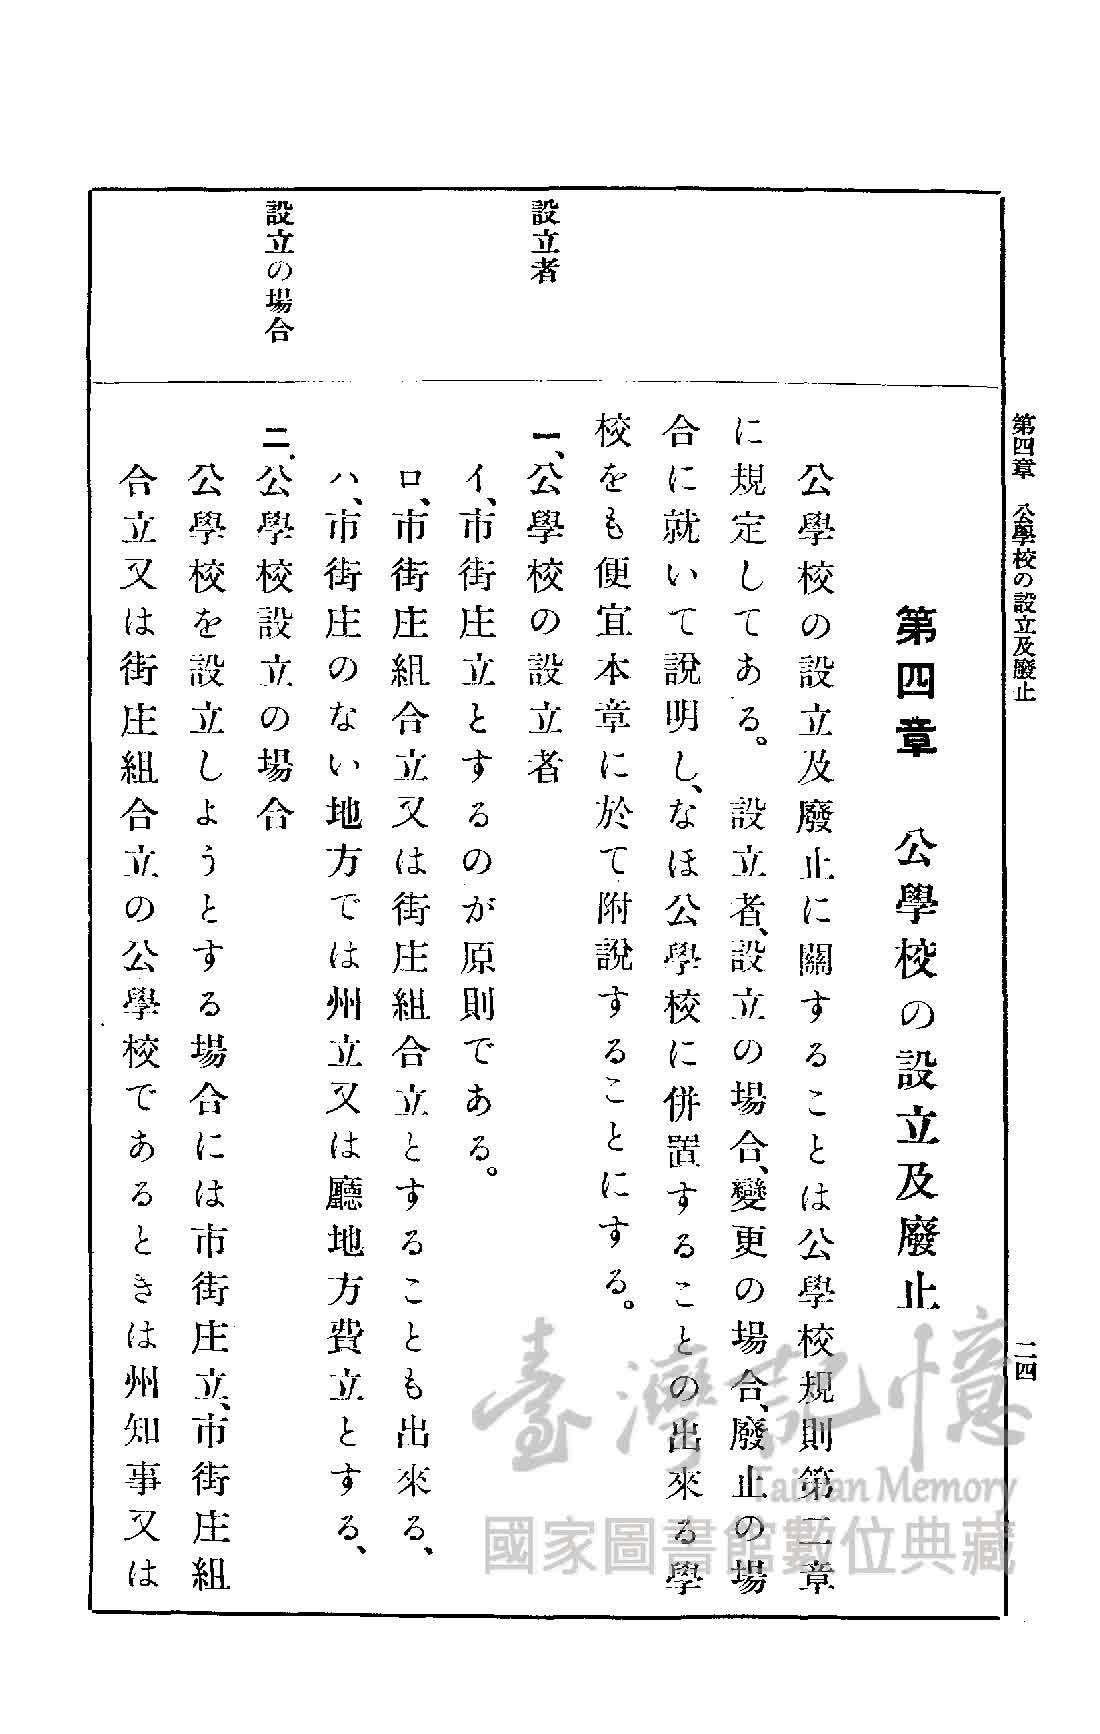 第四章　公學校の設立及廢止
二四
第四章　公學校の設立及廢止
公學校の設立及廢止に關することは公學校規則第二章
に規定してある。設立者、設立の場合、變更の場合、廢止の場
合に就いて說明し、なほ公學校に併置することの出來る學
校をも便宜本章に於て附說することにする。
設立者
一、公學校の設立者
イ、市街庄立とするのが原則である。
ロ、市街庄組合立又は街庄組合立とすることも出來る、
ハ、市街庄のない地方では州立又は廳地方費立とする、
設立の場合
二、公學校設立の場合
公學校を設立しようとする場合には市街庄立、市街庄組
合立又は街庄組合立の公學校であるときは州知事又は
臺灣記憶
Taiwan Memory
國家圖書館數位典藏